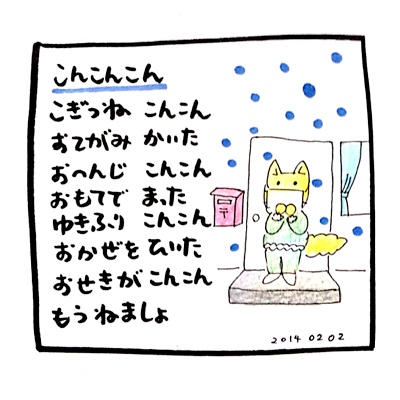 こんこんこん
こぎつね こんこん
おてがみ かいた
おへんじ こんこん
おもてで まった
ゆきふり こんこん
おかぜを ひいた
おせきが こんこん
もう ねましょ
〒
2014 02 02